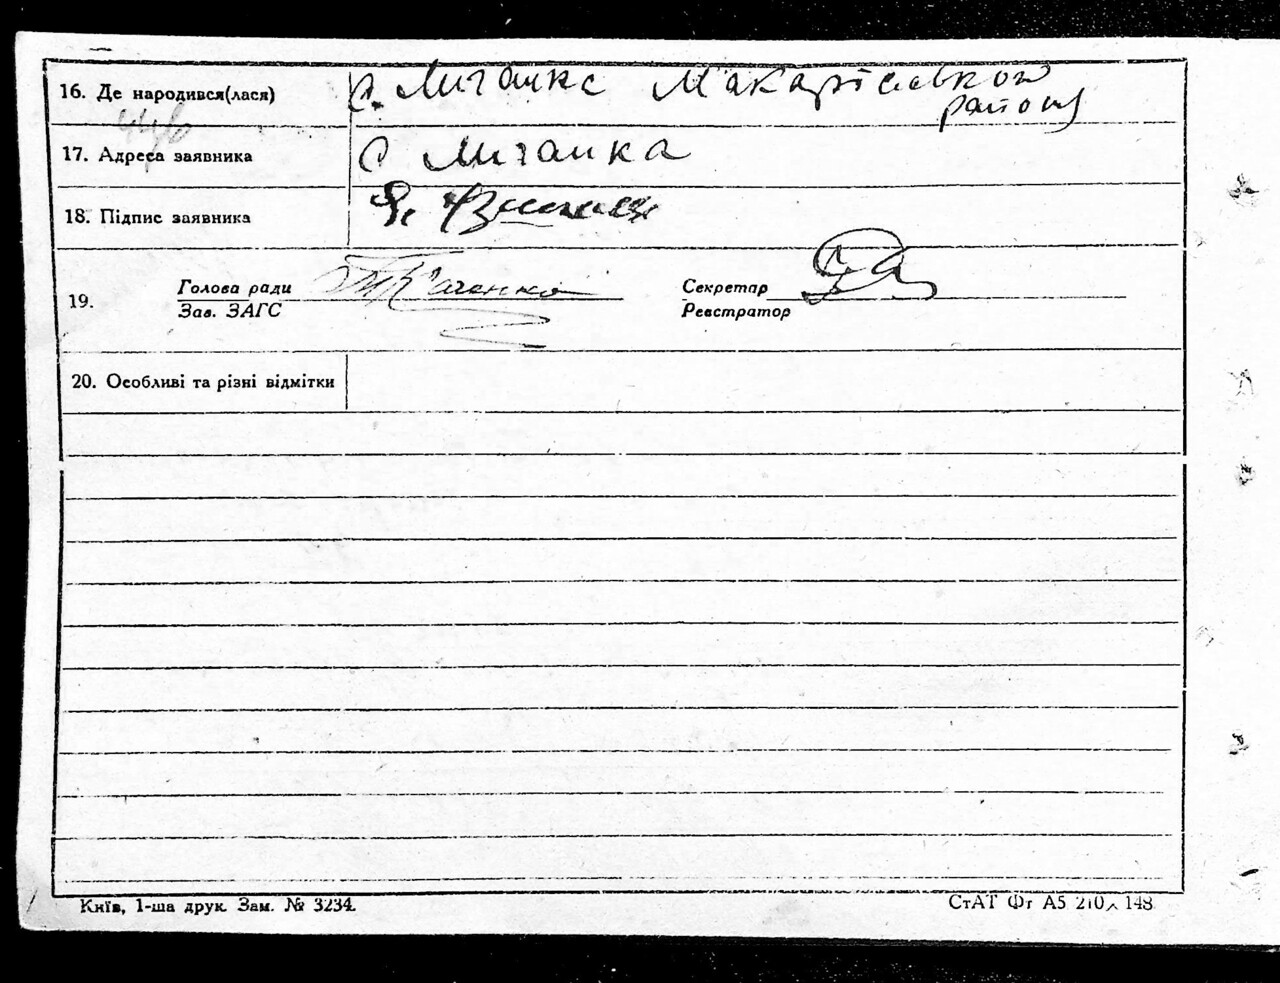 16. Де народився(лася) с. Личанка Макарівського
району
446
17. Адреса заявника с Личанка
18. Підпис заявника
19. Голова ради Ткаченко Секретар
Зав. ЗАГС Реєстратор
20. Особливі та різні відмітки
Київ, 1-ша друк. Зам. № 3234.
СтАТ Фт А5 210 х 148